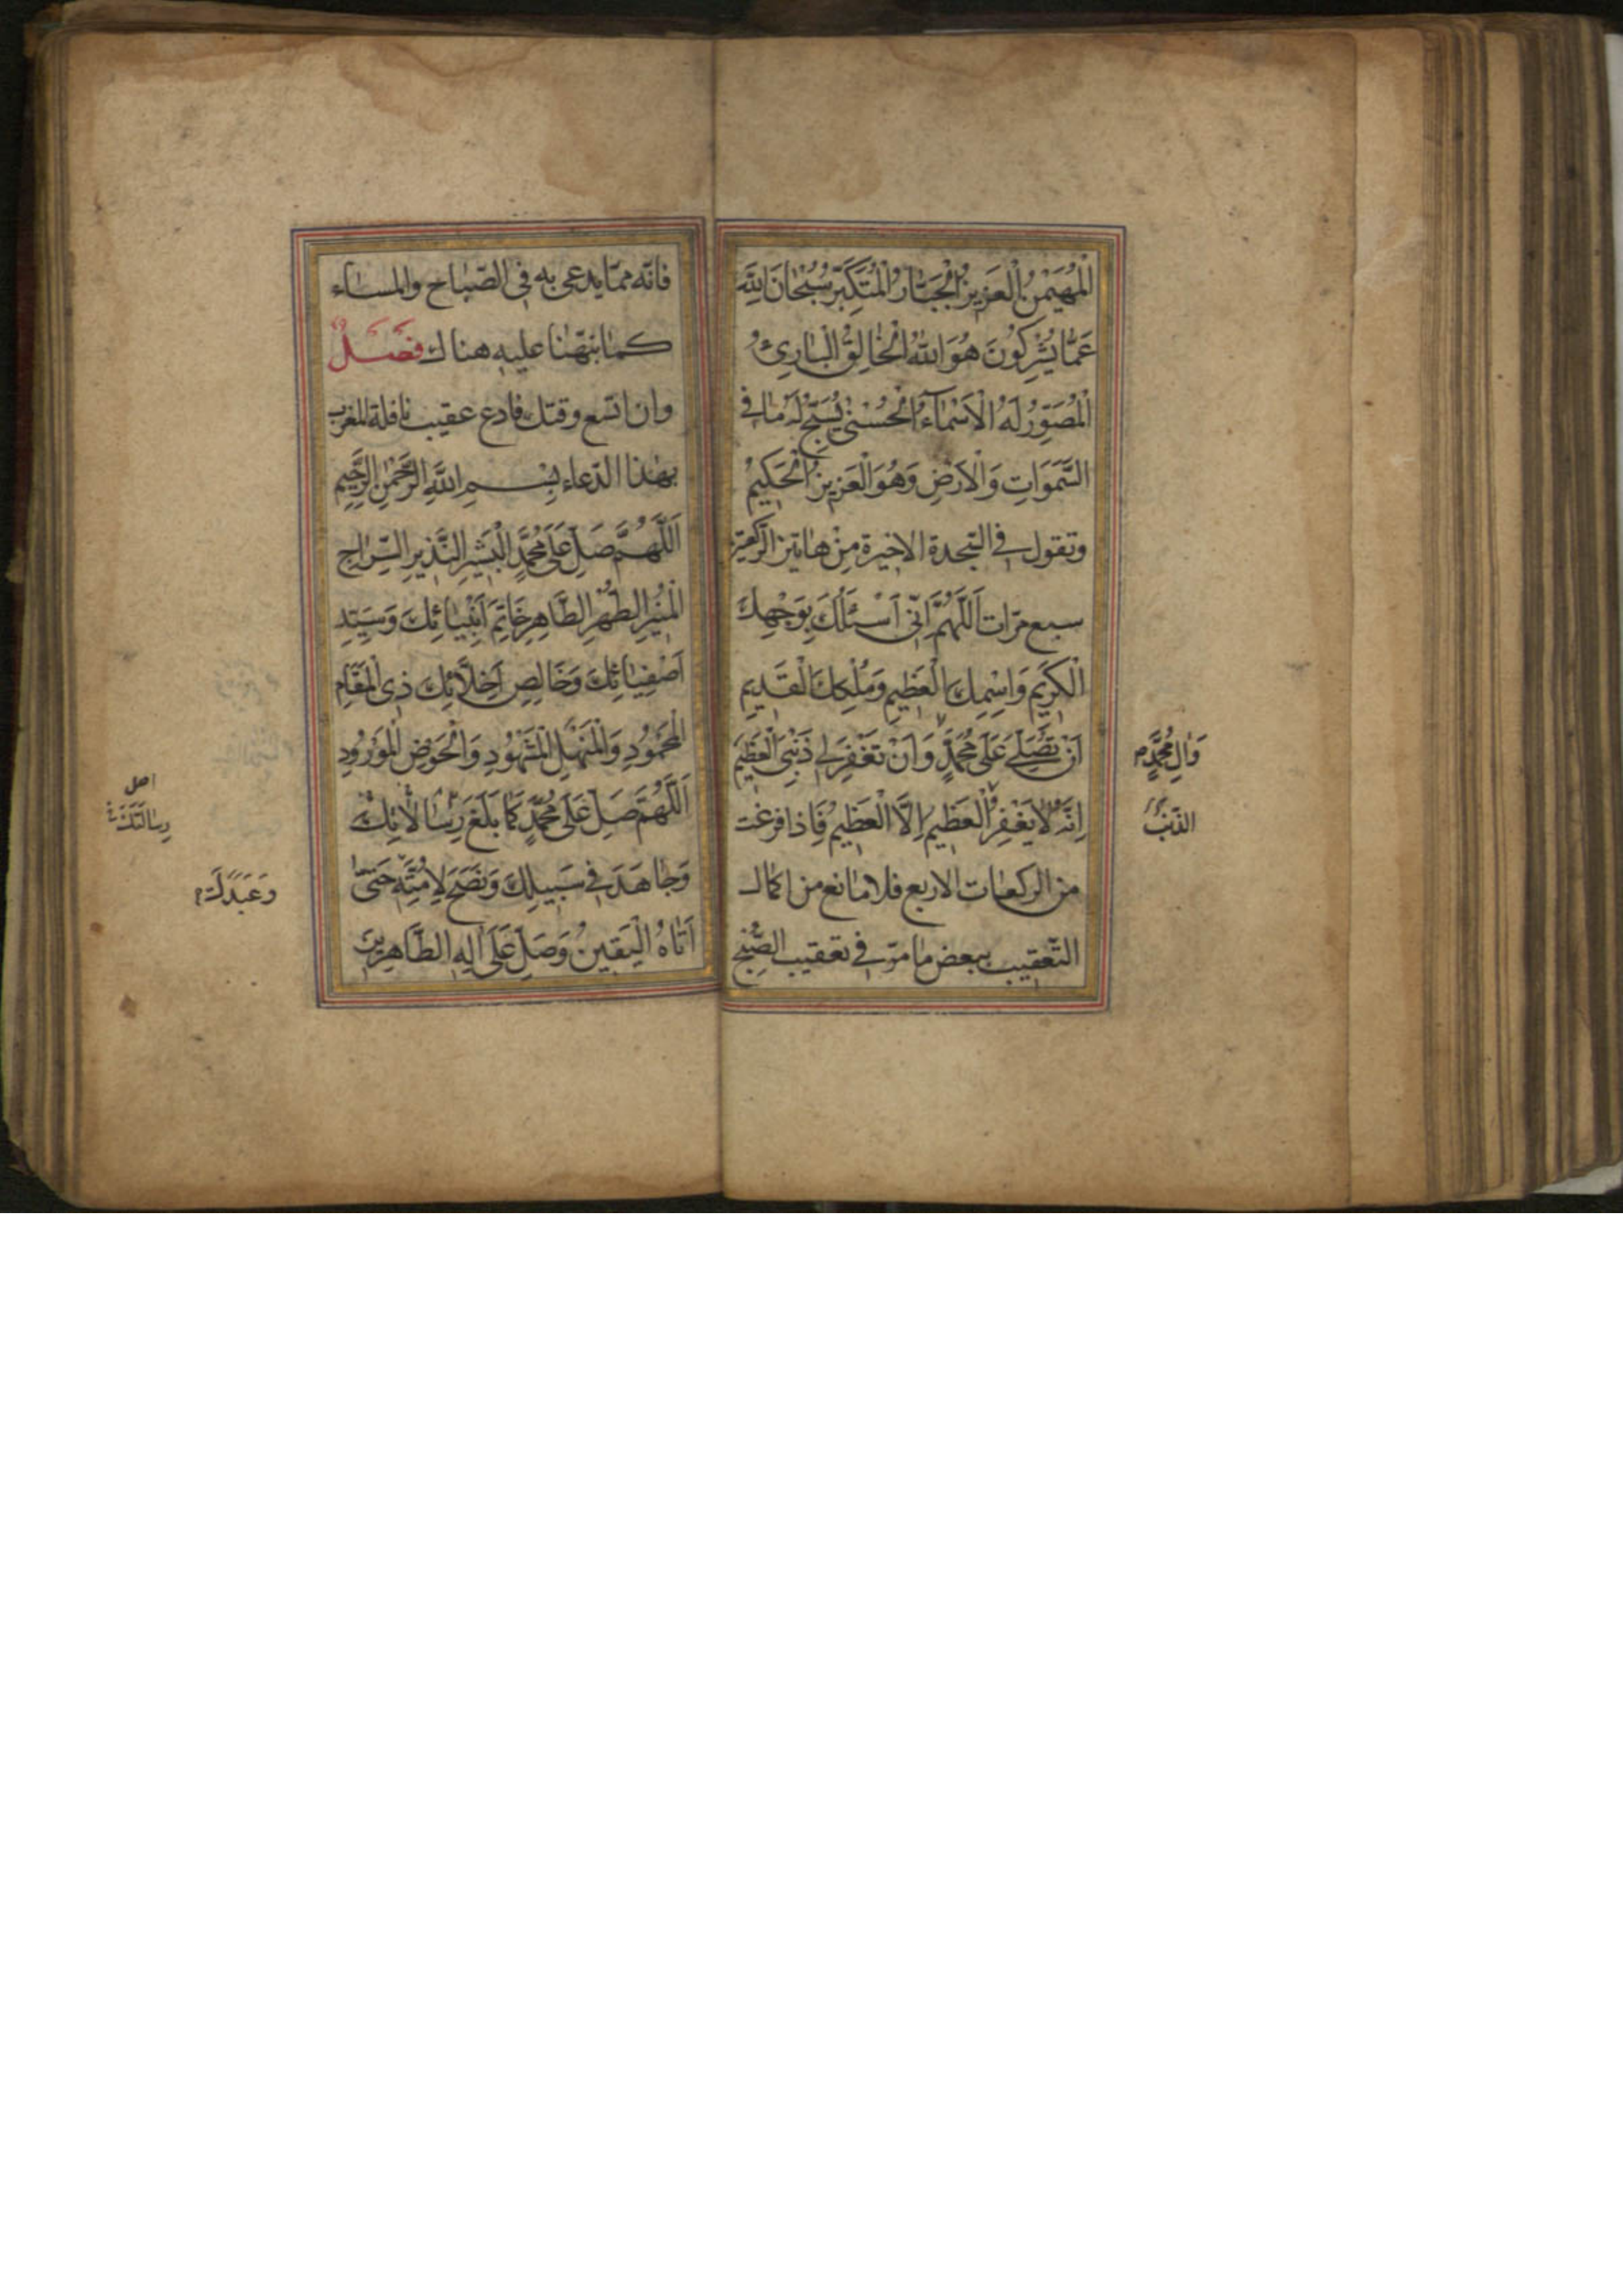 الْمُهَيْمِنُ الْعَزِيزُ الْجَبَّارُ الْمُتَكَبِّرُ سُبْحَانَ اللَّهِ
عَمَّا يُشْرِكُونَ هُوَ اللَّهُ الْخَالِقُ الْبَارِئُ
الْمُصَوِّرُ لَهُ الْأَسْمَاءُ الْحُسْنَى يُسَبِّحُ لَهُ مَا فِي
السَّمَوَاتِ وَالْأَرْضِ وَهُوَ الْعَزِيزُ الْحَكِيمُ
وتقول في السجدة الاخيرة مِنْ هاتين الركعتين
سبع مرّات اَللَّهُمَّ اِنّى اَسْئَلُكَ بِوَجْهِكَ
الْكَرِيمِ وَاسْمِكَ الْعَظِيمِ وَمُلْكِكَ الْقَدِيمِ
اَنْ تُصَلِّيَ عَلَى مُحَمَّدٍ وَاَنْ تَغْفِرَ لِي ذَنْبِيَ الْعَظِيمَ
وَآلِ مُحَمَّدٍ
اِنَّهُ لَا يَغْفِرُ الْعَظِيمَ اِلَّا الْعَظِيمُ فَاِذا فرغت
الذَّنْبَ
من الركعات الاربع فلا مانع من اكمال
التّعقيب ببعض ما مرّ في تعقيب الصّبح
فانّه ممّا يدعى به فى الصّباح والمساء
كما نبّهنا عليه هناك فصل
وان اتّسع وقتك فادع عقيب نافلة المغرب
بهذا الدّعاء بِسْمِ اللَّهِ الرَّحْمَنِ الرَّحِيمِ
اَللَّهُمَّ صَلِّ عَلَى مُحَمَّدٍ الْبَشِيرِ النَّذِيرِ السِّرَاجِ
الْمُنِيرِ الطُّهْرِ الطَّاهِرِ خَاتِمِ اَنْبِيَائِكَ وَسَيِّدِ
اَصْفِيَائِكَ وَخَالِصِ اَخِلَّائِكَ ذِى الْمَقَامِ
الْمَحْمُودِ وَالْمَنْهَلِ الْمَشْهُودِ وَالْحَوْضِ الْمَوْرُودِ
اَللَّهُمَّ صَلِّ عَلَى مُحَمَّدٍ كَمَا بَلَّغَ رِسَالَاتِكَ
اصل
رِسالَتَكَ
وَجَاهَدَ فِي سَبِيلِكَ وَنَصَحَ لِاُمَّتِهِ حَتَّى
وَعَبَدَكَ
اَتَاهُ الْيَقِينُ وَصَلِّ عَلَى آلِهِ الطَّاهِرِينَ